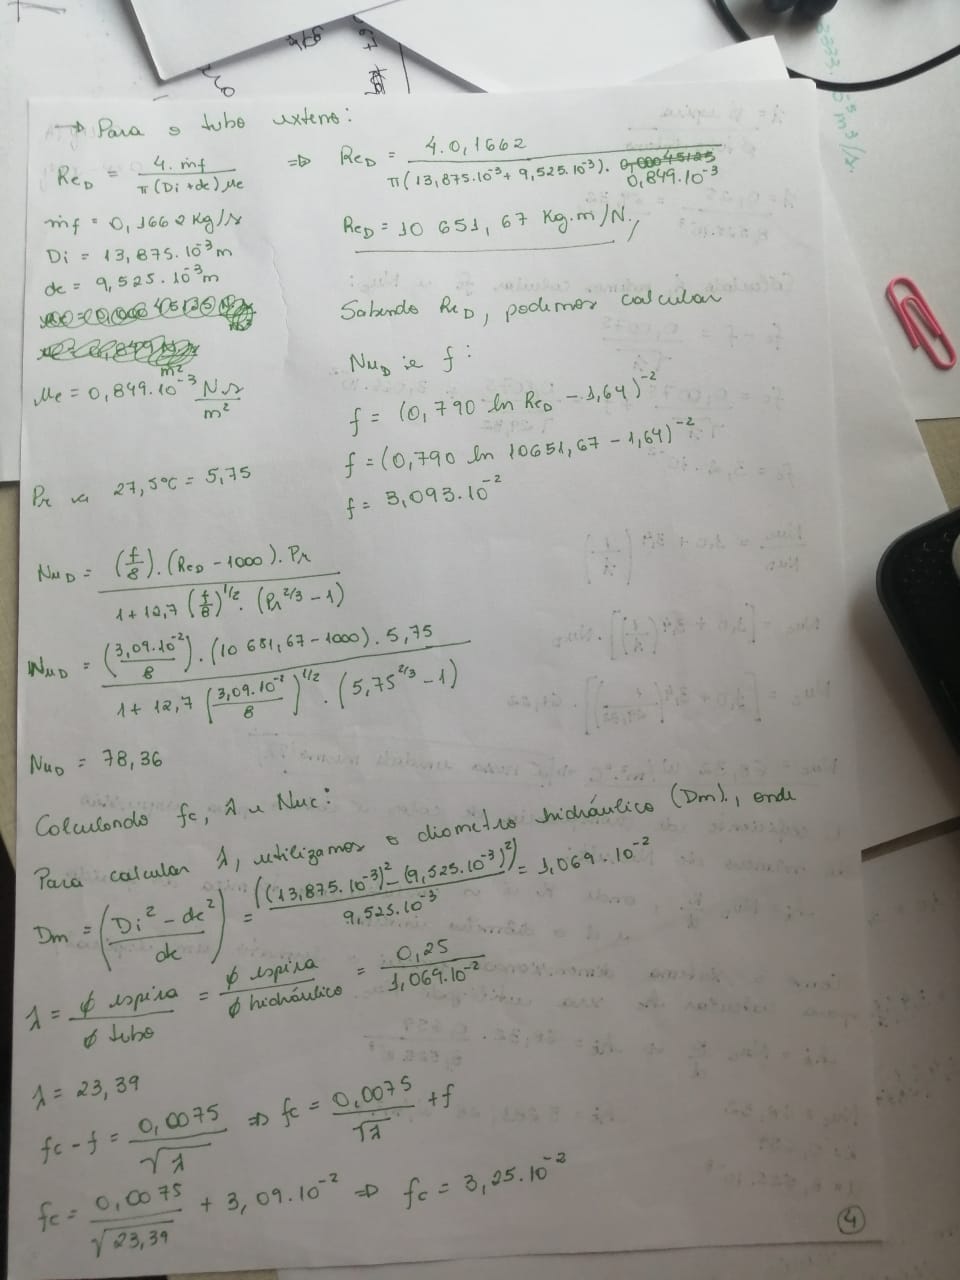 → Para o tubo externo:
Re_D = 4. ṁf / π (Di + de) μe ⇒ Re_D = 4.0,1662 / π (13,875.10⁻³ + 9,525.10⁻³). 0,849.10⁻³
ṁf = 0,1662 Kg/s
Re_D = 10 651,67 Kg.m/N.s
Di = 13,875.10⁻³ m
de = 9,525.10⁻³ m
Sabendo Re_D, podemos calcular
Nu_D e f:
μe = 0,849.10⁻³ Ns/m²
f = (0,790 ln Re_D - 1,64)⁻²
f = (0,790 ln 10651,67 - 1,64)⁻²
Pr a 27,5°C = 5,75
f = 3,093.10⁻²
Nu_D = (f/8) . (Re_D - 1000) . Pr / 1 + 12,7 (f/8)^1/2 . (Pr^2/3 - 1)
Nu_D = (3,09.10⁻²/8) . (10 651,67 - 1000) . 5,75 / 1 + 12,7 (3,09.10⁻²/8)^1/2 . (5,75^2/3 - 1)
Nu_D = 78,36
Calculando fc, λ e Nuc:
Para calcular λ, utilizamos o diametro hidráulico (Dm), onde
Dm = (Di² - de² / de) = ((13,875.10⁻³)² - (9,525.10⁻³)²) / 9,525.10⁻³ = 1,069.10⁻²
λ = ϕ espira / ϕ tubo = ϕ espira / ϕ hidráulico = 0,25 / 1,069.10⁻²
λ = 23,39
fc - f = 0,0075 / √λ ⇒ fc = 0,0075 / √λ + f
fc = 0,0075 / √23,39 + 3,09.10⁻² ⇒ fc = 3,25.10⁻²
4